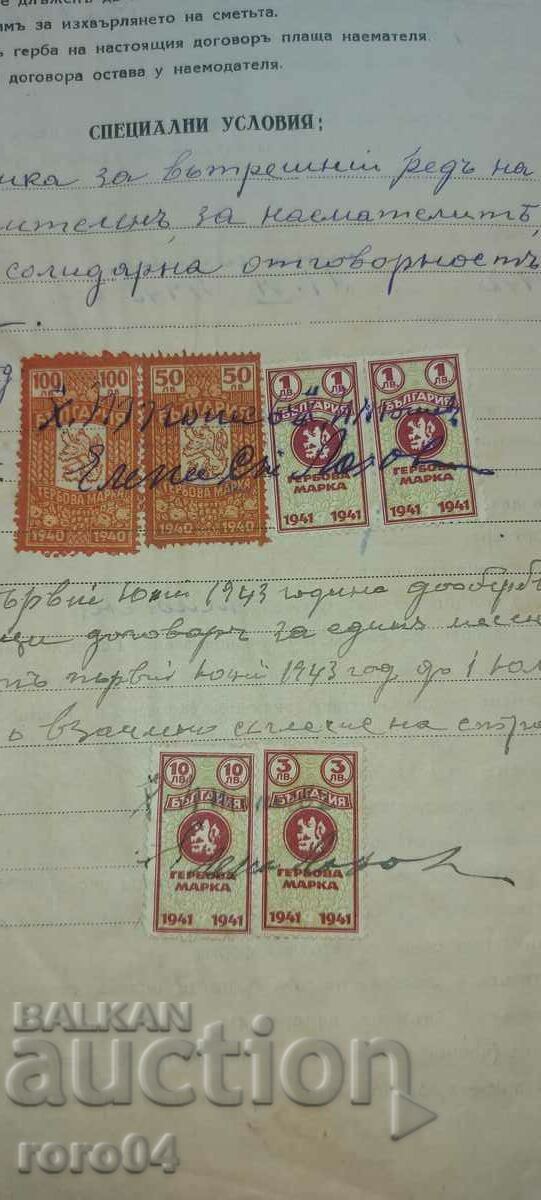 е длъженъ да
амъ за изхвърлянето на сметьта.
ъ герба на настоящия договоръ плаща наемателя.
договора остава у наемодателя.
СПЕЦИАЛНИ УСЛОВИЯ:
ика за вътрешний редъ на
за наемателитѣ,
солидарна отговорность
100 ЛВ. 100 ЛВ.
БЪЛГАРИЯ
ГЕРБОВА МАРКА
1940 1940
50 ЛВ. 50 ЛВ.
БЪЛГАРИЯ
ГЕРБОВА МАРКА
1940 1940
1 ЛВ. 1 ЛВ.
БЪЛГАРИЯ
ГЕРБОВА
МАРКА
1941 1941
1 ЛВ. 1 ЛВ.
БЪЛГАРИЯ
ГЕРБОВА
МАРКА
1941 1941
Елена
първий юний 1943 година
договоръ за единъ месец
първий юний 1943 год. до 1 юл
взаимно съгласие на стра
10 ЛВ. 10 ЛВ.
БЪЛГАРИЯ
ГЕРБОВА
МАРКА
1941 1941
3 ЛВ. 3 ЛВ.
БЪЛГАРИЯ
ГЕРБОВА
МАРКА
1941 1941
BALKAN
auction
roro04